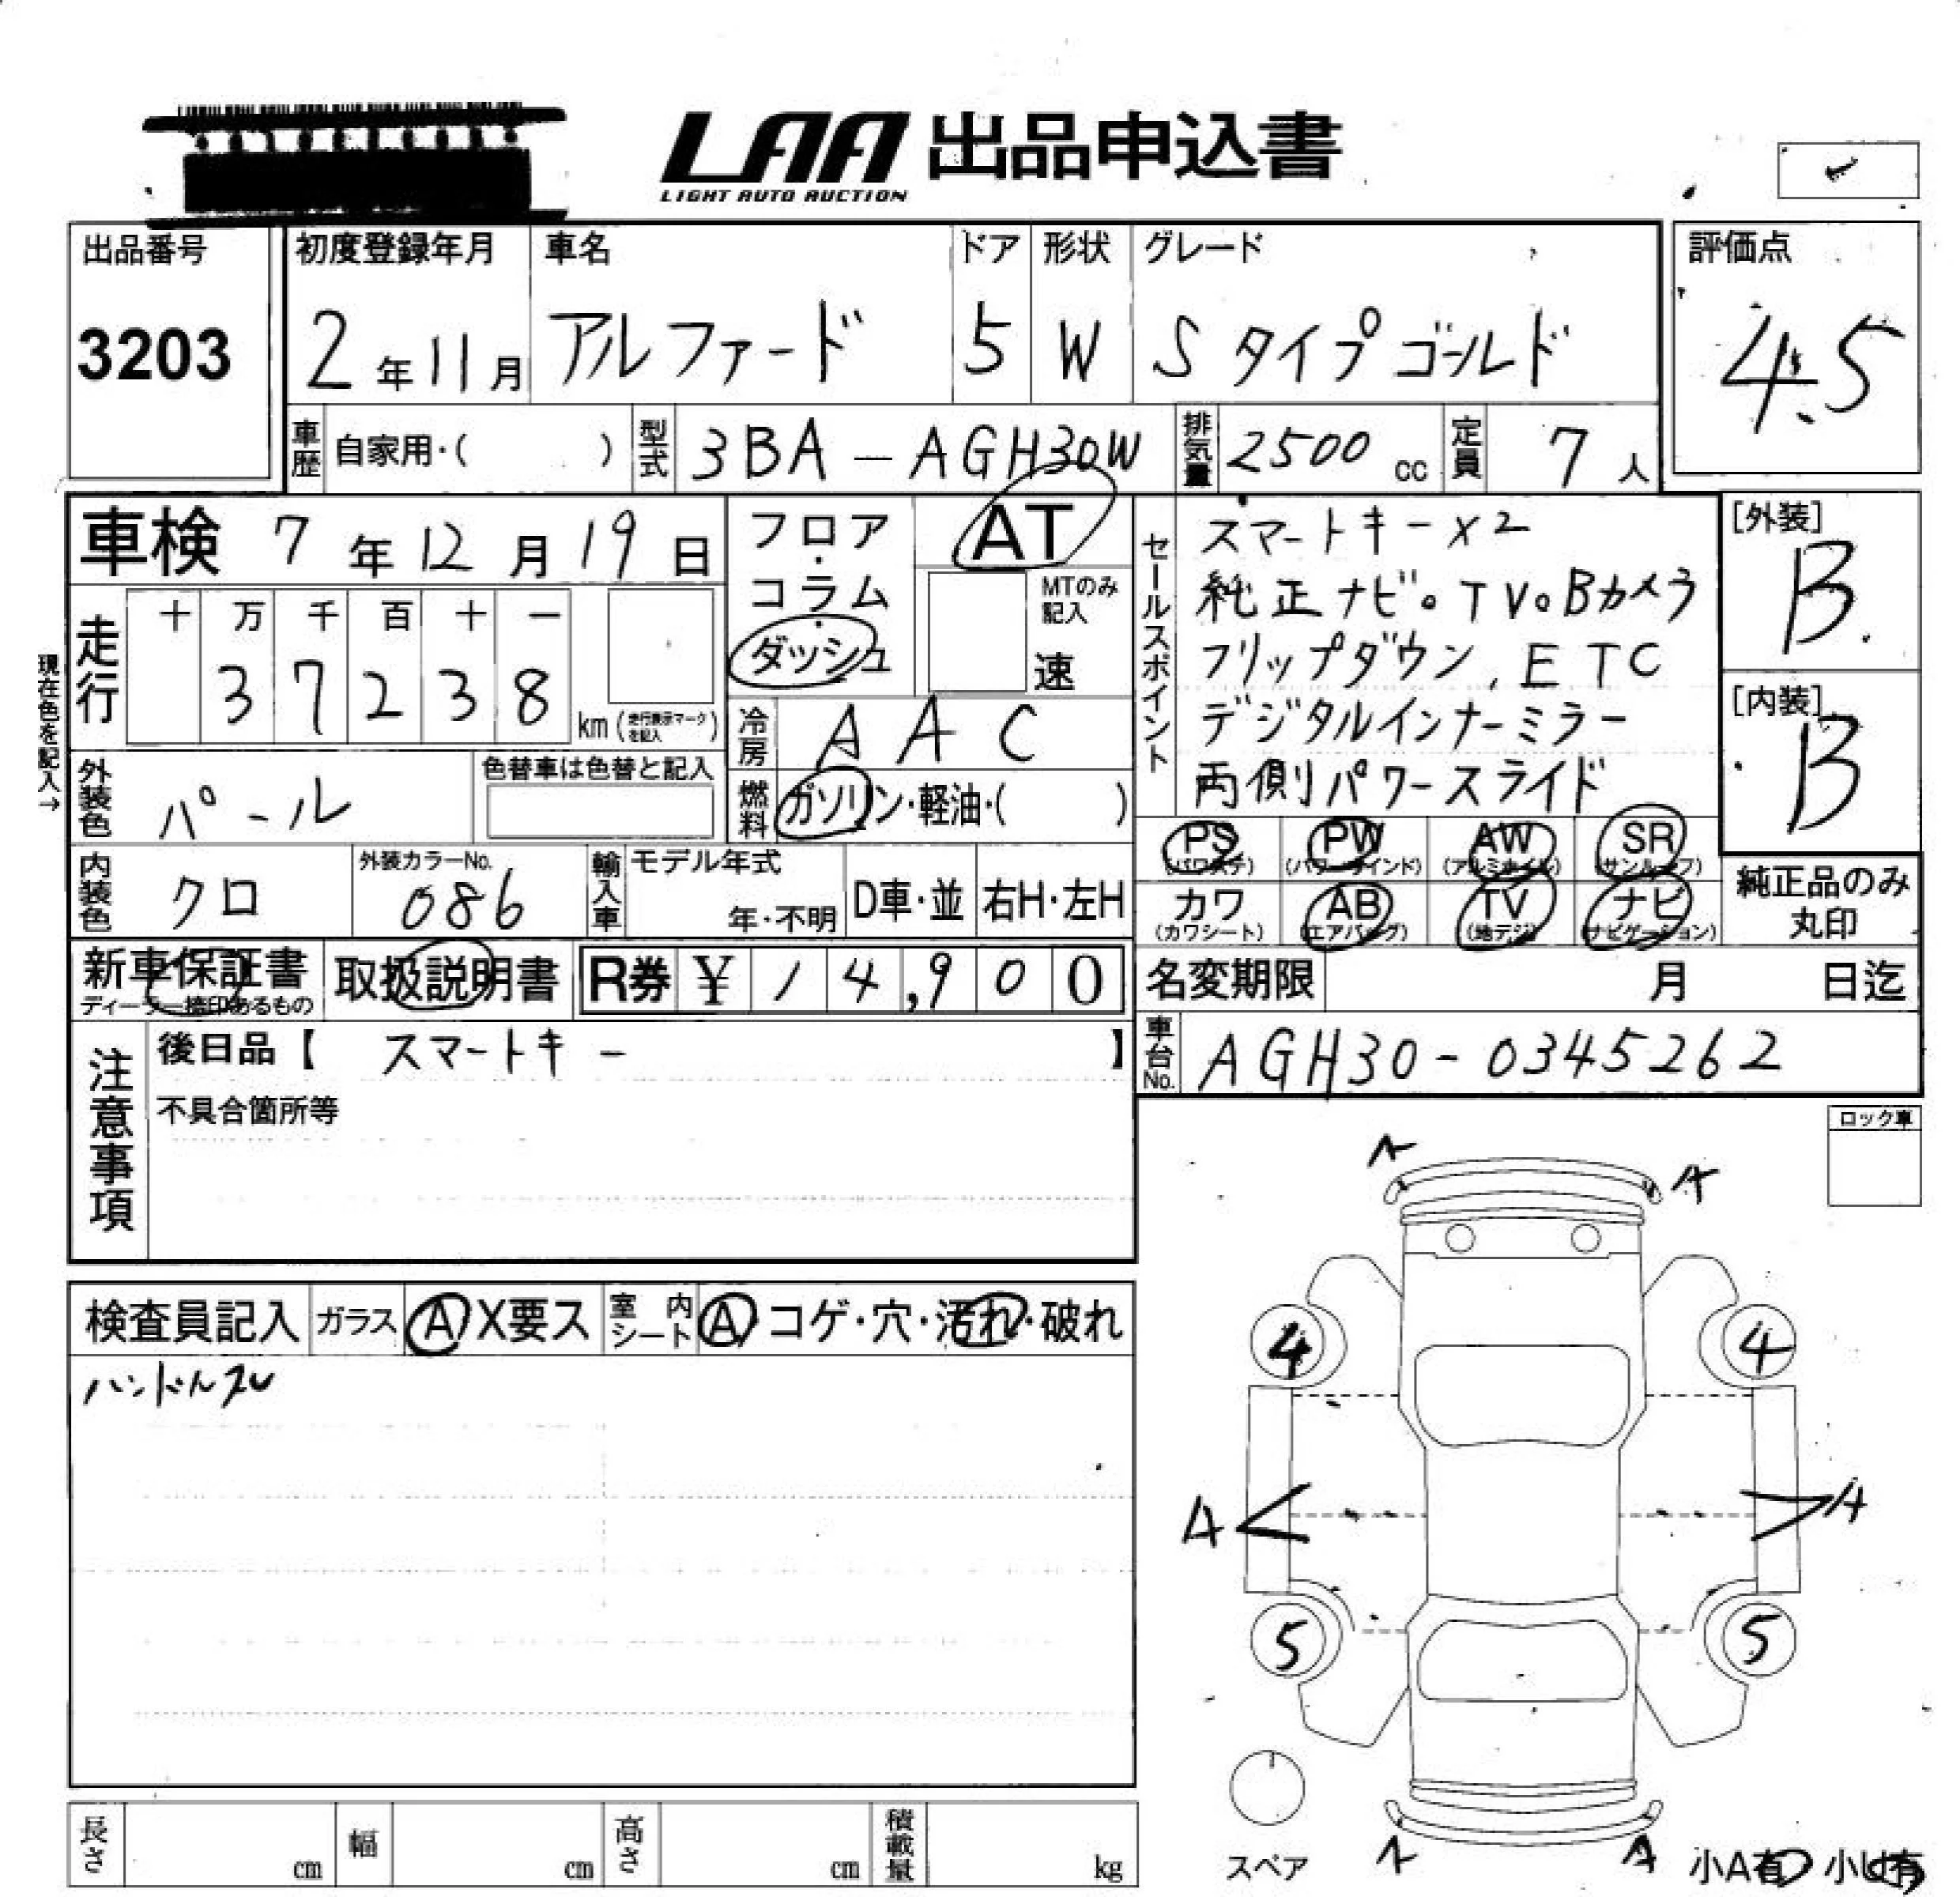 LAA 出品申込書
LIGHT AUTO AUCTION
出品番号 初度登録年月 車名 ドア 形状 グレード 評価点
3203 2年11月 アルファード 5 W Sタイプゴールド 4.5
車歴 自家用・( ) 型式 3BA-AGH30W 排気量 2500cc 定員 7人
車検 7年12月19日
フロア・コラム・ダッシュ AT
MTのみ記入 速
セールスポイント
スマートキー×2
純正ナビ。TV。Bカメラ
フリップダウン、ETC
デジタルインナーミラー
両側リパワースライド
[外装] B.
[内装] B
現在色を記入→
走行 十 万 千 百 十 一
37238 km(走行表示マークを記入)
冷房 AAC
外装色 パール 色替車は色替と記入
燃料 ガソリン・軽油・( )
PS PW AW SR
(パワステ) (パワーウインド) (アルミホイル) (サンルーフ)
カワ AB TV ナビ
(カワシート) (エアバッグ) (地デジ) (ナビゲーション)
純正品のみ丸印
内装色 クロ 外装カラーNo. 086 輸入車 モデル年式 年・不明 D車・並 右H・左H
新車保証書 取扱説明書 R券 ¥14,900
ディーラー捺印あるもの
名変期限 月 日迄
車台No. AGH30-0345262
注意事項
後日品【 スマートキー 】
不具合箇所等
ロック車
A A
検査員記入 ガラス A X要ス 室内シート A コゲ・穴・汚れ・破れ
ハンドルスレ
4 4
A A
5 5
スペア
A A
小A有 小U有
長さ cm 幅 cm 高さ cm 積載量 kg